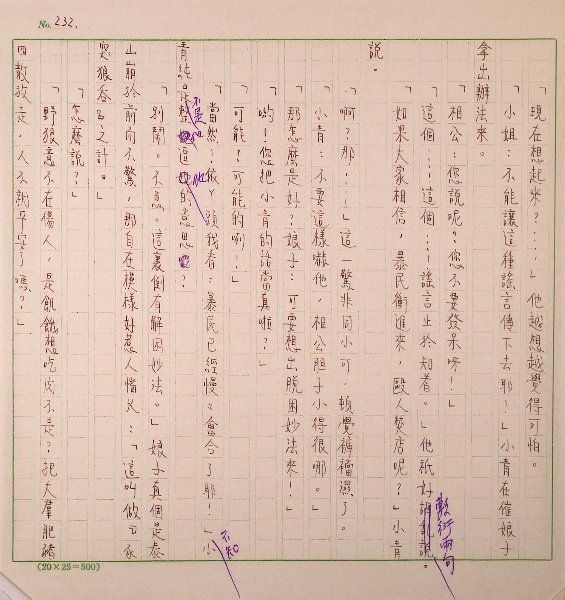 No. 232.
「現在想起來？……」他越想越覺得可怕。
「小姐：不能讓這種謠言傳下去耶！」小青在催娘子
拿出辦法來。
「相公：您說呢。您不要發呆呀！」
「這個……這個……謠言止於知者。」他祇好說。
敷衍兩句
「如果大家相信，暴民衝進來，毆人焚店呢？」小青
說。
「啊？那……」這一驚非同小可，頓覺褲襠濕了。
「小青：不要這樣嚇他，相公胆子小得很哪。」
「那怎麼是好？娘子：可要想出脫困妙法來！」
「喲！您把小青的話當真啦？」
「可能？可能的啊！」
「當然：依丫頭我看：暴民已經慢慢會合了耶！」小
不知
青純是整這的意思？
不是他
「別鬧。不急。這裏倒有解困妙法。」娘子真個是泰
山崩於前而不驚，那自在模樣好惹人惱火：「這叫做以豕
突狼吞之計。」
「怎麼說？」
「野狼意不在傷人，是飢餓想吃肉不是？把大羣肥豬
四散放走，人不就平安了嗎？」
(20×25=500)